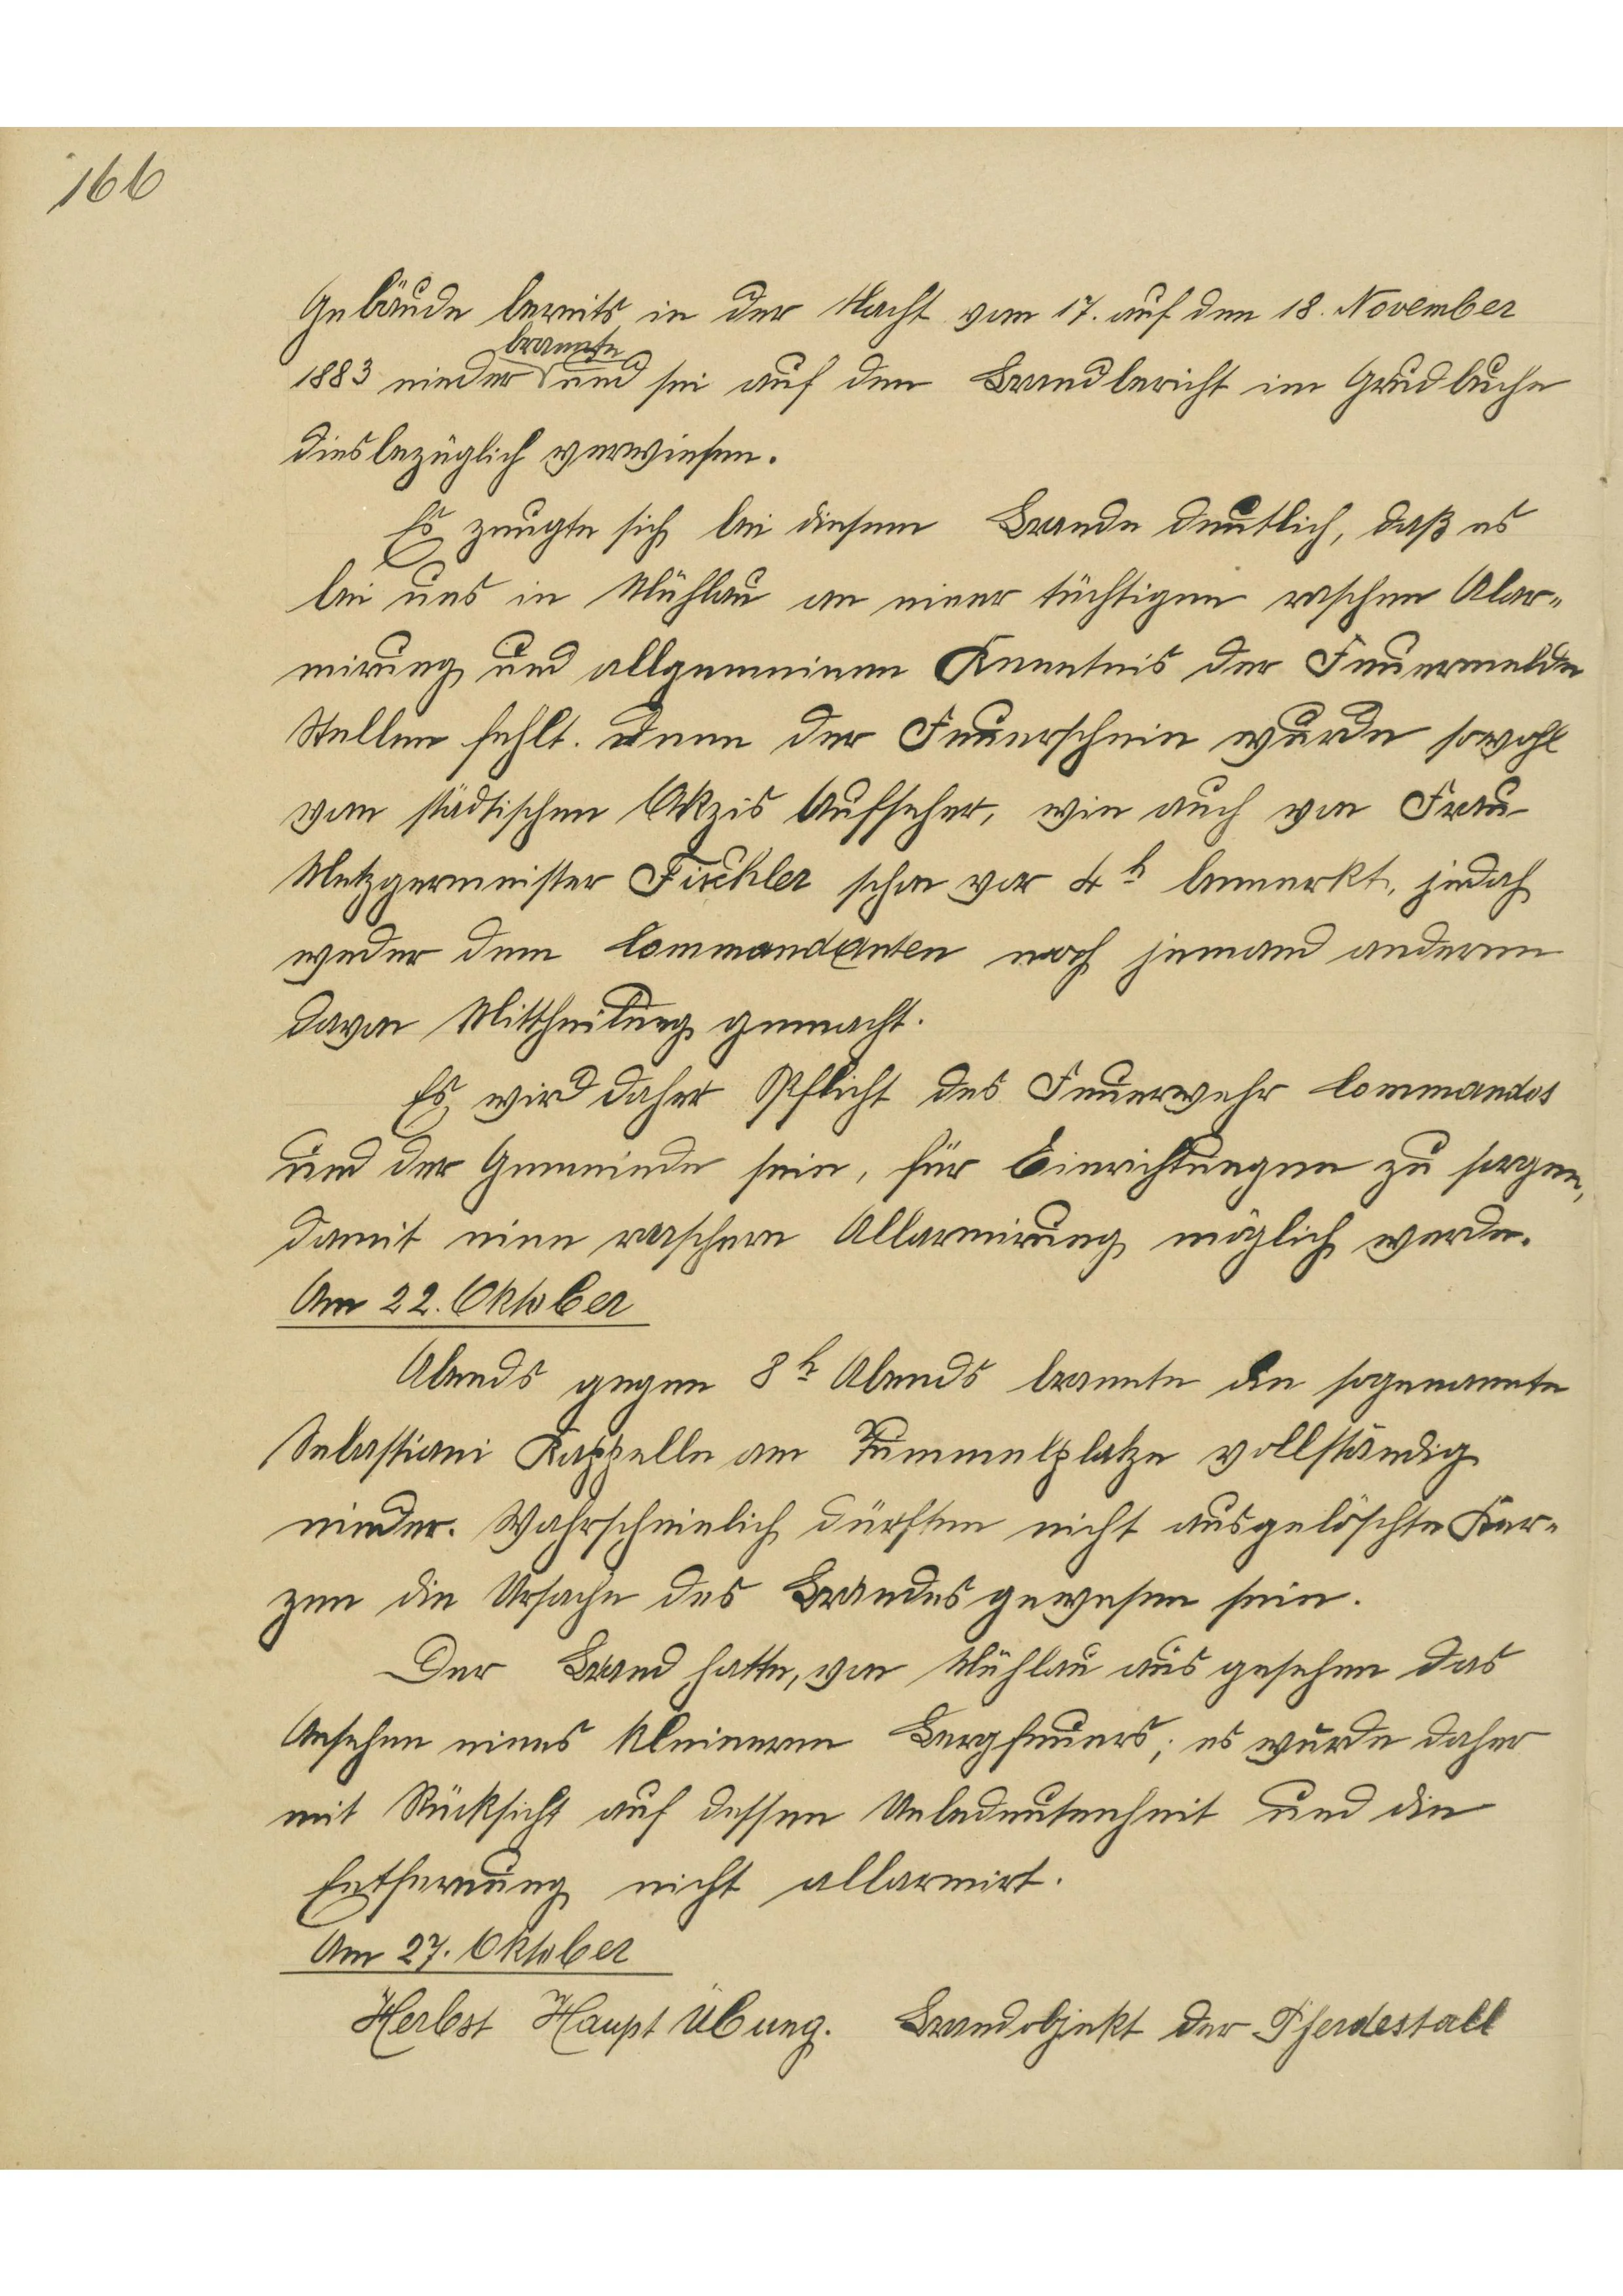 166
Gebäude bereits in der Nacht vom 17. auf den 18. November
brannte
1883 nieder und sei auf den Brandbericht im Grudbuche
diesbezüglich verwiesen.
Es zeugte sich bei diesem Brande deutlich, daß es
bei uns in Mühlau an einer tüchtigen raschen Alar-
mirung und allgemeinen Kenntnis der Feuermelde
Stellen fehlt. Denn der Feuerschein wurde sowohl
vom städtischen Akzis Aufseher, wie auch von Frau
Metzgermeister Fischler schon vor 4 h bemerkt, jedoch
weder dem Commandanten noch jemand anderem
davon Mittheilung gemacht.
Es wird daher Pflicht des Feuerwehr Commandos
und der Gemeinde sein, für Einrichtungen zu sorgen,
damit eine raschere Allarmirung möglich werde.
Am 22. Oktober
Abends gegen 8 h Abends brannte die sogenannte
Sebastiani Kappelle am Tummelplatze vollständig
nieder. Wahrscheinlich dürften nicht ausgelöschte Ker-
zen die Ursache des Brandes gewesen sein.
Der Brand hatte, von Mühlau aus gesehen das
Ansehen eines kleineren Bergfeuers; es wurde daher
mit Rücksicht auf dessen Unbedeutenheit und die
Entfernung nicht allarmirt.
Am 27. Oktober
Herbst Haupt Übung. Brandobjekt der Pferdestall